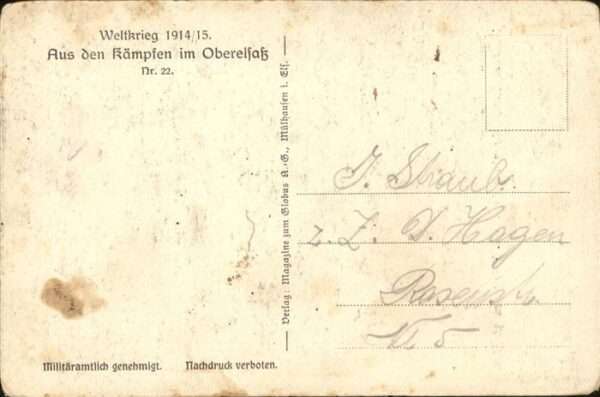 Weltkrieg 1914/15.
Aus den Kämpfen im Oberelsaß
Nr. 22.
Verlag: Magazine zum Globus A.-G., Mülhausen i. Els.
J. Straub.
z. Z. D. Hagen
Rosenstr.
VI 5
Militäramtlich genehmigt. Nachdruck verboten.